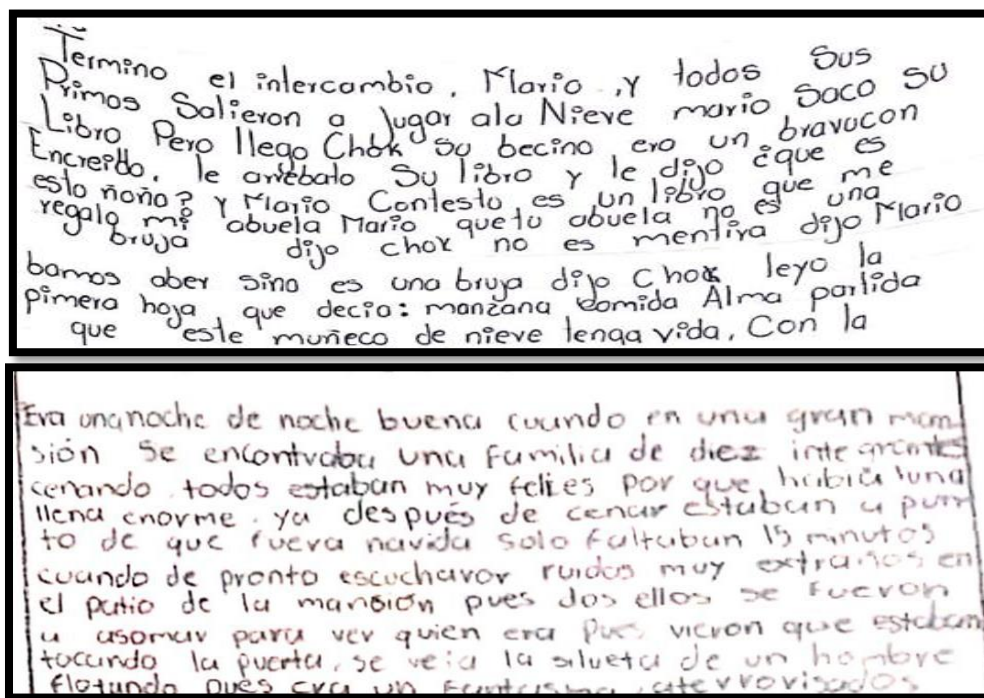 Termino el intercambio, Mario, y todos sus
Primos Salieron a Jugar ala Nieve mario Saco Su
Libro Pero llego Chok su becino era un bravucon
Encreido, le arrebato Su libro y le dijo ¿que es
esto ñoño? y Mario Contesto es un libro que me
regalo mi abuela Mario que tu abuela no es una
bruja dijo chok no es mentira dijo Mario
bamos aber sino es una bruja dijo Chok leyo la
pimera hoja que decia: manzana comida Alma partida
que este muñeco de nieve tenga vida, Con la
Era una noche de noche buena cuando en una gran mam
sión se encontraba una familia de diez integrantes
cenando todos estaban muy felies por que habia luna
llena enorme. ya después de cenar estaban a pum
to de que fuera navida solo faltaban 15 minutos
cuando de pronto escucharor ruidos muy extraños en
el patio de la mansión pues dos ellos se fueron
a asomar para ver quien era pues vieron que estaban
tocando la puerta, se veia la silueta de un hombre
flotando pues era un fantasma, aterrorisados